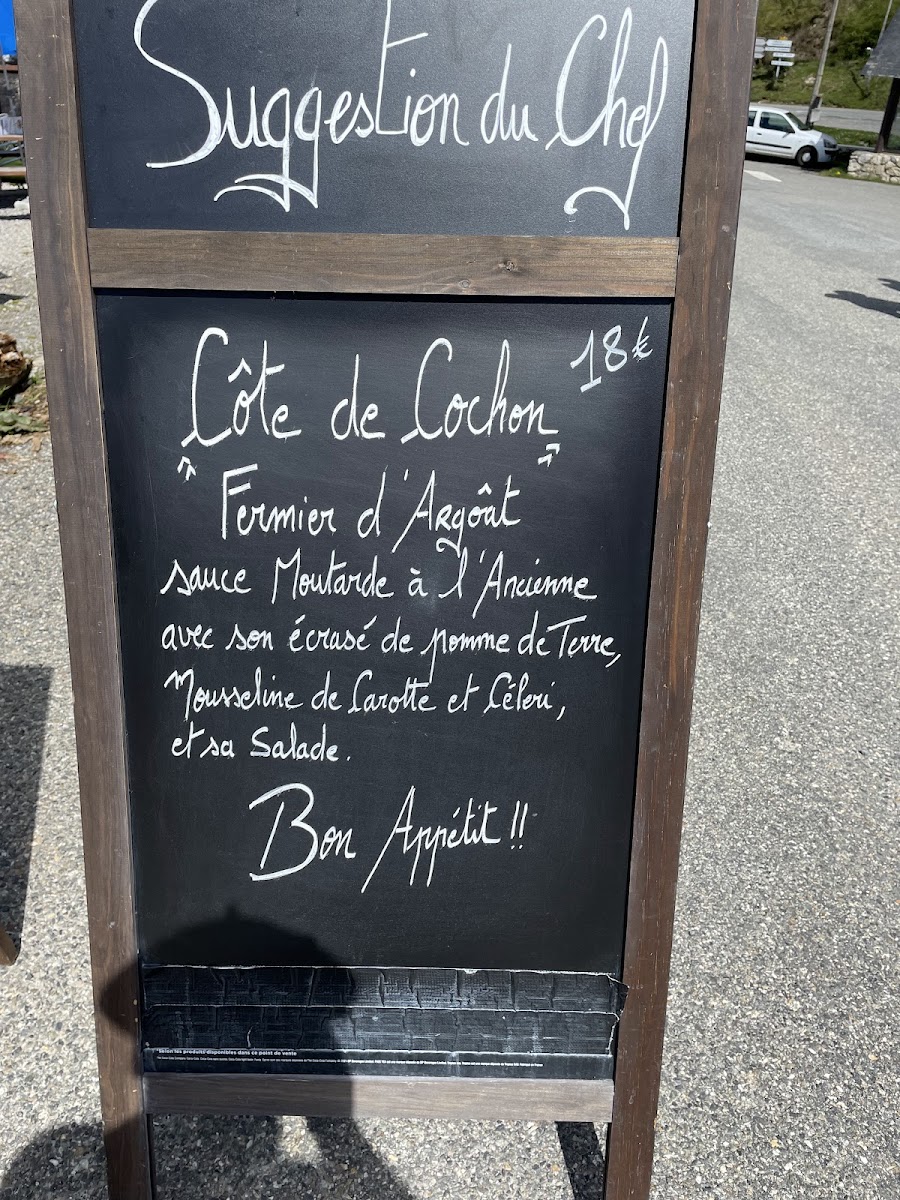 Suggestion du Chef
Côte de Cochon 18€
" Fermier d'Argôat "
sauce Moutarde à l'Ancienne
avec son écrasé de pomme de Terre,
Mousseline de Carotte et Céleri,
et sa Salade.
Bon Appétit !!
*Selon les produits disponibles dans ce point de vente